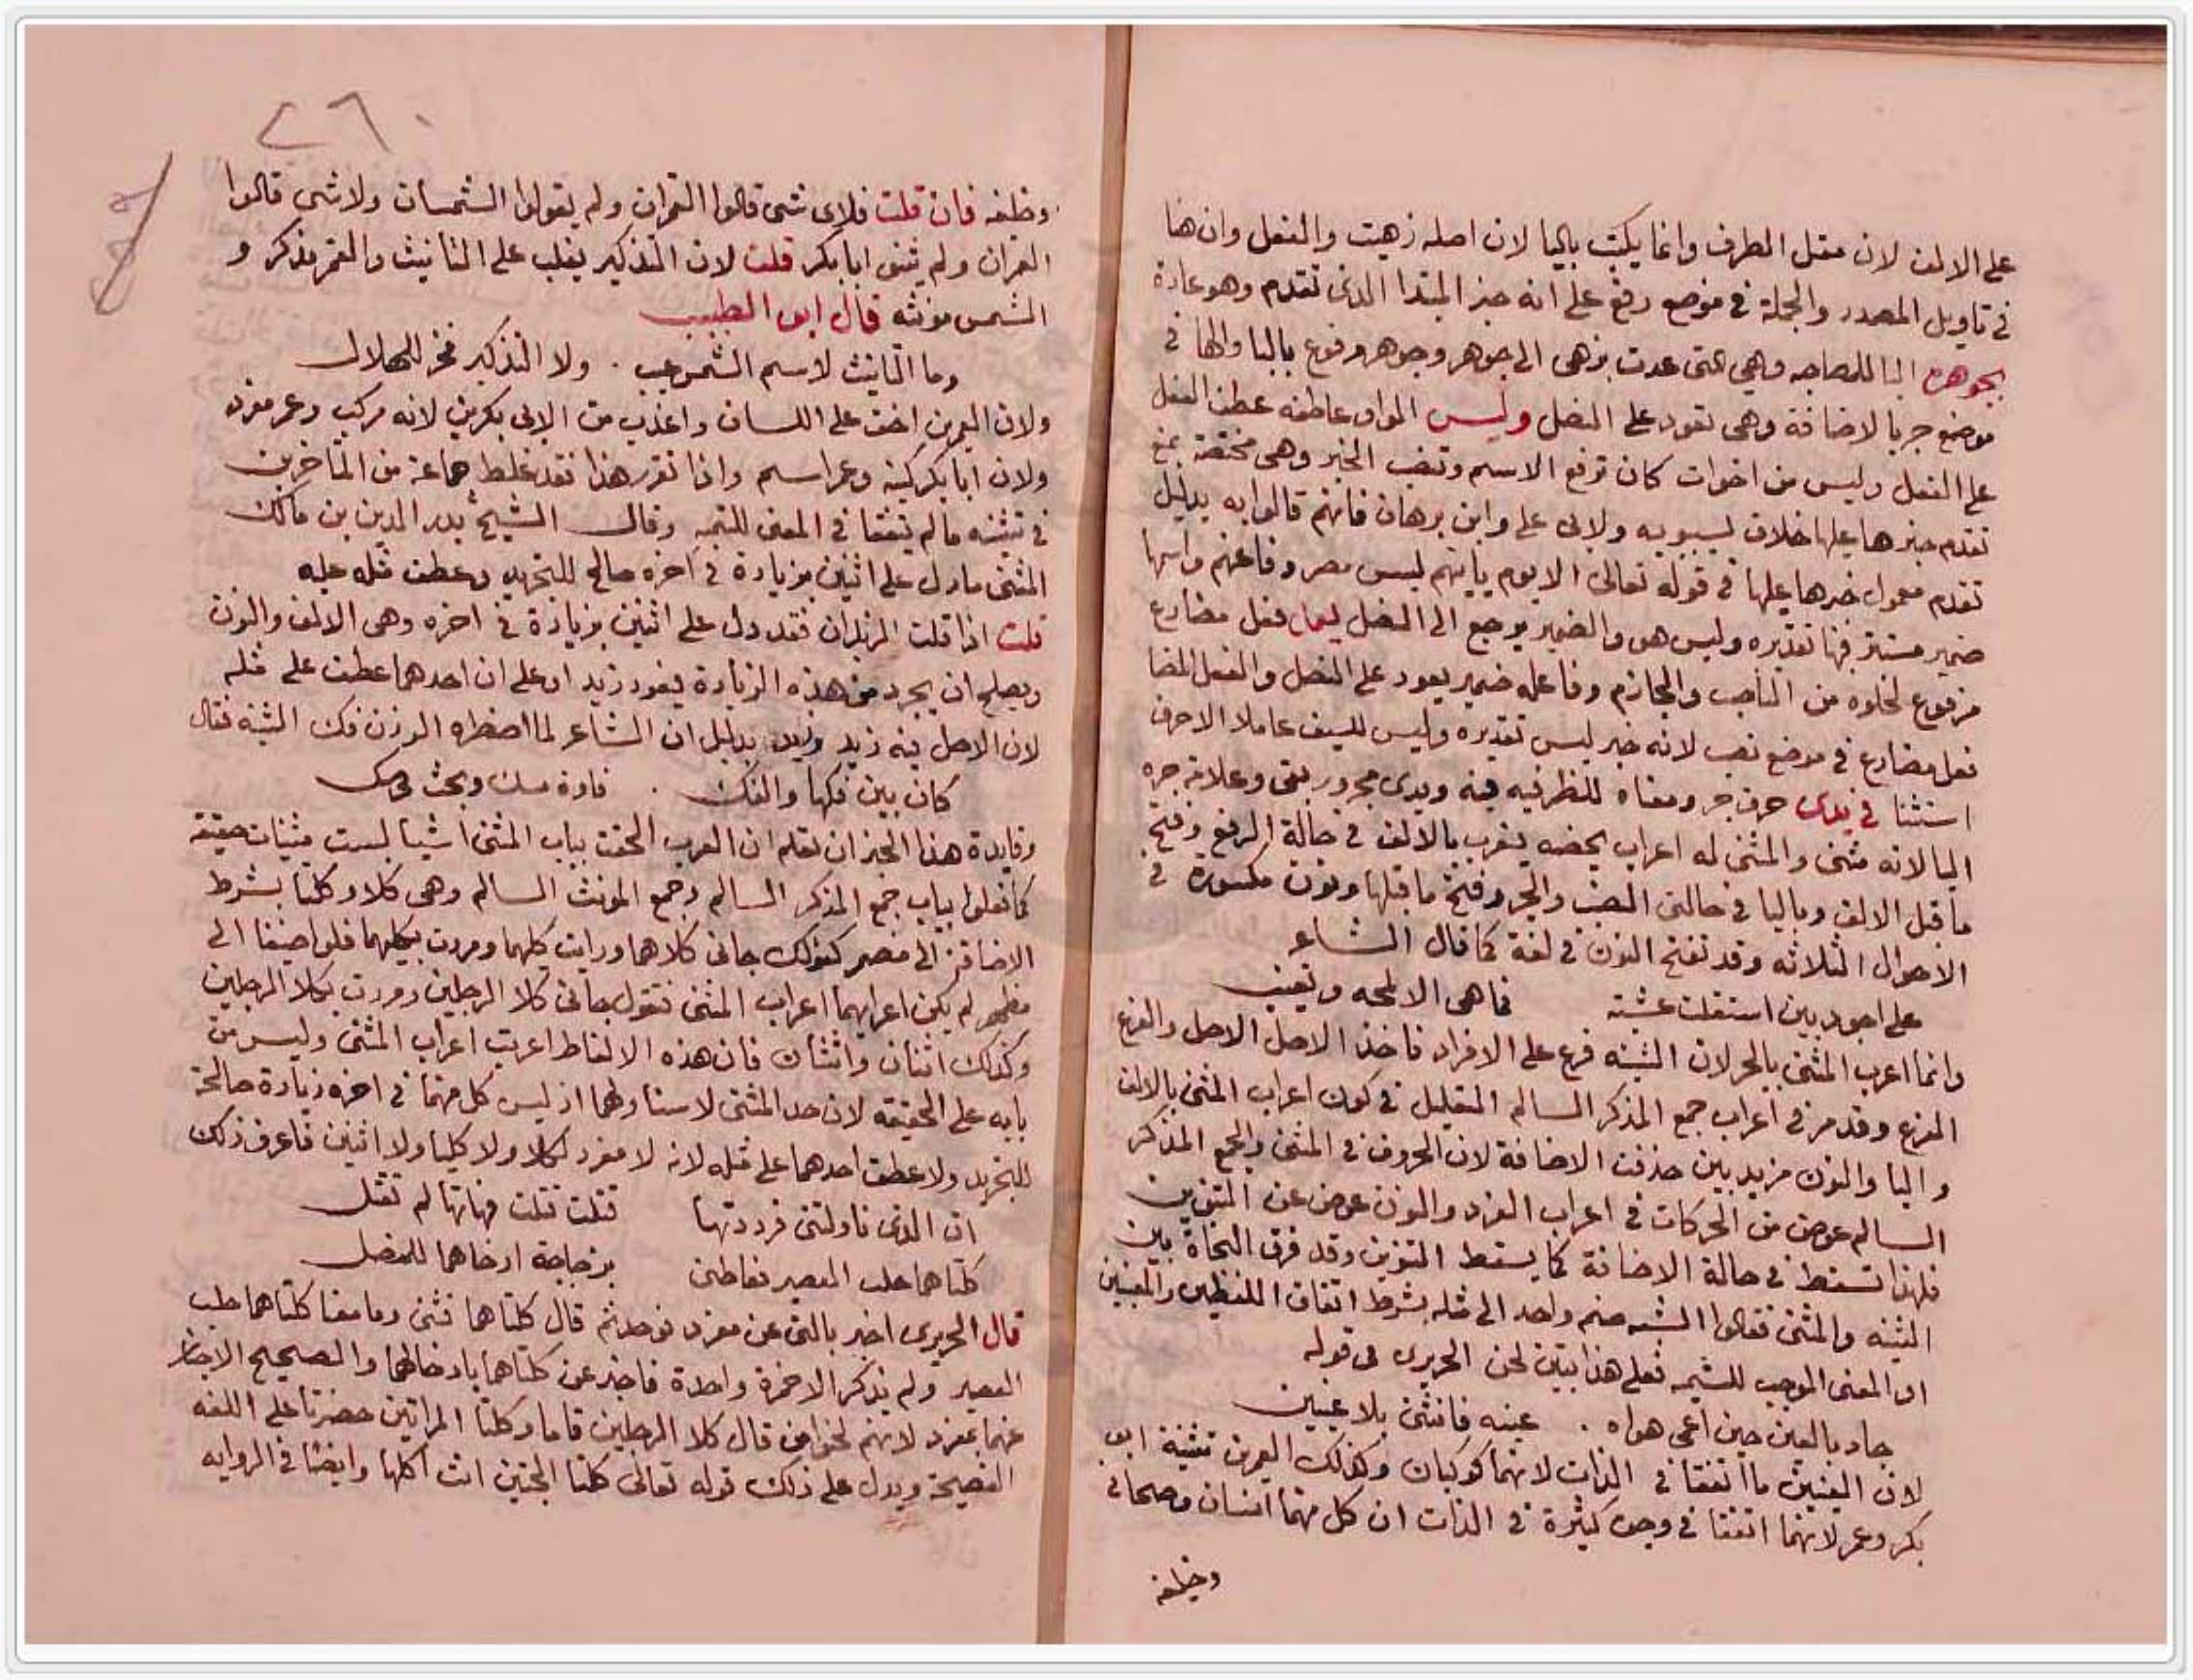 على الالف لان معتل الطرف وانما يكتب باليا لان اصله زهيت والفعل وان هنا
فى تاويل المصدر والجملة فى موضع رفع على انه خبر المبتدا الذى تقدم وهو عادة
بجوهره البا للمصاحبه وهى التى عدت يزهى الى جوهر وجوهر مرفوع بالبا والها فى
موضع جر بالاضافة وهى تعود على النصل وليس الواو عاطفه عطف الفعل
على الفعل وليس من اخوات كان ترفع الاسم وتنصب الخبر وهى مختصة بمنع
تقدم خبرها عليها خلاف لسيبويه ولابى على وابن برهان فانهم قالوا به بدليل
تقدم معمول خبرها عليها فى قوله تعالى الا يوم ياتيهم ليس مصروفا عنهم واسمها
ضمير مستتر فيها تقديره وليس هو والضمير يرجع الى النصل يعمل فعل مضارع
مرفوع لخلوه من الناصب والجازم وفاعله ضمير يعود على النصل والفعل المضا
فعل مضارع فى موضع نصب لانه خبر ليس تقديره وليس للسيف عاملا الا حرف
استثنا فى يدى حرف جر ومعناه للظرفيه فيه ويدى مجرور بفى وعلامة جره
اليا لانه مثنى والمثنى له اعراب يخصه يعرب بالالف فى حالة الرفع وفتح
ما قبل الالف وباليا فى حالتى النصب والجر وفتح ما قبلها ونون مكسورة فى
الاحوال الثلاثه وقد تفتح النون فى لغة كما قال الشاعر
على احوذيين استقلت عشيته فما هى الا لمحه وتغيب
وانما اعرب المثنى بالحر لان التثنيه فرع على الافراد فاخذ الاصل الاصل والفرع
الفرع وقد مر فى اعراب جمع المذكر السالم التعليل فى كون اعراب المثنى بالالف
واليا والنون مزيدين حذفت الاضافة لان الحروف فى المثنى والجمع المذكر
السالم عوض من الحركات فى اعراب الفرد والنون عوض عن التنوين
فلهذا تسقط فى حالة الاضافة كما يسقط التنوين وقد فرق النحاة بين
التثنيه والمثنى فقالوا التثنيه ضم واحد الى مثله بشرط اتفاق اللفظين والمعنيين
او المعنى الموجب للتثنيه فعلى هذا يتبين لحن الحريرى فى قوله
جاد بالعين حين اعمى هواه . عينه فانثنى بلا عينين
لان العينين ما اتفقا فى الذات لانهما كوكبان وكذلك العمرين تثنية ابى
بكر وعمر لانهما اتفقا فى وجوه كثيرة فى الذات ان كل منهما انسان وصحابى
وخليفه
٢٦٠
وخليفه فان قلت فلاى شى قالوا القمران ولم يقولوا الشمسان ولاشى قالوا
العمران ولم يثنى ابا بكر قلت لان التذكير يغلب على التانيث والقمر مذكر و
الشمس مونثه قال ابو الطيب
وما التانيث لاسم الشمس عيب . ولا التذكير فخر للهلال
ولان العمرين اخف على اللسان واعذب من الابى بكرين لانه مركب وعمر مفرد
ولان ابا بكر كنيه وعمر اسم واذا تقرر هذا فقد غلط جماعة من المتاخرين
فى تثنيه ما لم يتفقا فى المعنى للتثنيه وقال الشيخ بدر الدين بن مالك
المثنى ما دل على اثنين بزيادة فى اخره صالح للتجريد وعطف مثله عليه
قلت اذا قلت الزيدان فقد دل على اثنين بزيادة فى اخره وهى الالف والنون
ويصلح ان يجرد من هذه الزيادة فيعود زيد او على ان احدهما عطف على مثله
لان الاصل فيه زيد وزيد بدليل ان الشاعر لما اضطره الوزن فك التثنيه فقال
كان بين فكها والفك . فارة مسك ذبحت فى سك
وفايدة هذا الحيز ان تعلم ان العرب الحقت بباب المثنى اشيا ليست مثنيات حقيقة
كما فعلوا بباب جمع المذكر السالم وجمع المونث السالم وهى كلا وكلتا بشرط
الاضافة الى مضمر كقولك جانى كلاهما ورايت كليهما ومررت بكليهما فلو اضيفا الى
مظهر لم يكن اعرابهما اعراب المثنى فتقول جانى كلا الرجلين ومررت بكلا الرجلين
وكذلك اثنان واثنتان فان هذه الالفاظ اعربت اعراب المثنى وليس من
بابه على الحقيقة لان حد المثنى لا يتناولهما اذ ليس كل منهما فى اخره زيادة صالحة
للتجريد ولا عطف احدهما على مثله لانه لا مفرد لكلا ولا كلتا ولا اثنين فاعرف ذلك
ان الذى ناولتنى فرددتها قتلت قتلت فهاتها لم تقتل
كلتاهما حلب العصير فعاطنى بزجاجة ارخاهما للمفصل
قال الحريرى اخبر بالتى عن مفرد فوحد ثم قال كلتاهما فثنى وما معنا كلتاهما حلب
العصير ولم يذكر الا خمرة واحدة فاخبر عن كلتاهما بارخاهما والصحيح الاخبار
عنهما بمفرد لانهم لحنوا من قال كلا الرجلين قاما وكلتا المراتين حضرتا على اللغه
الفصيحة ويدل على ذلك قوله تعالى كلتا الجنتين اتت اكلها وايضا فى الروايه